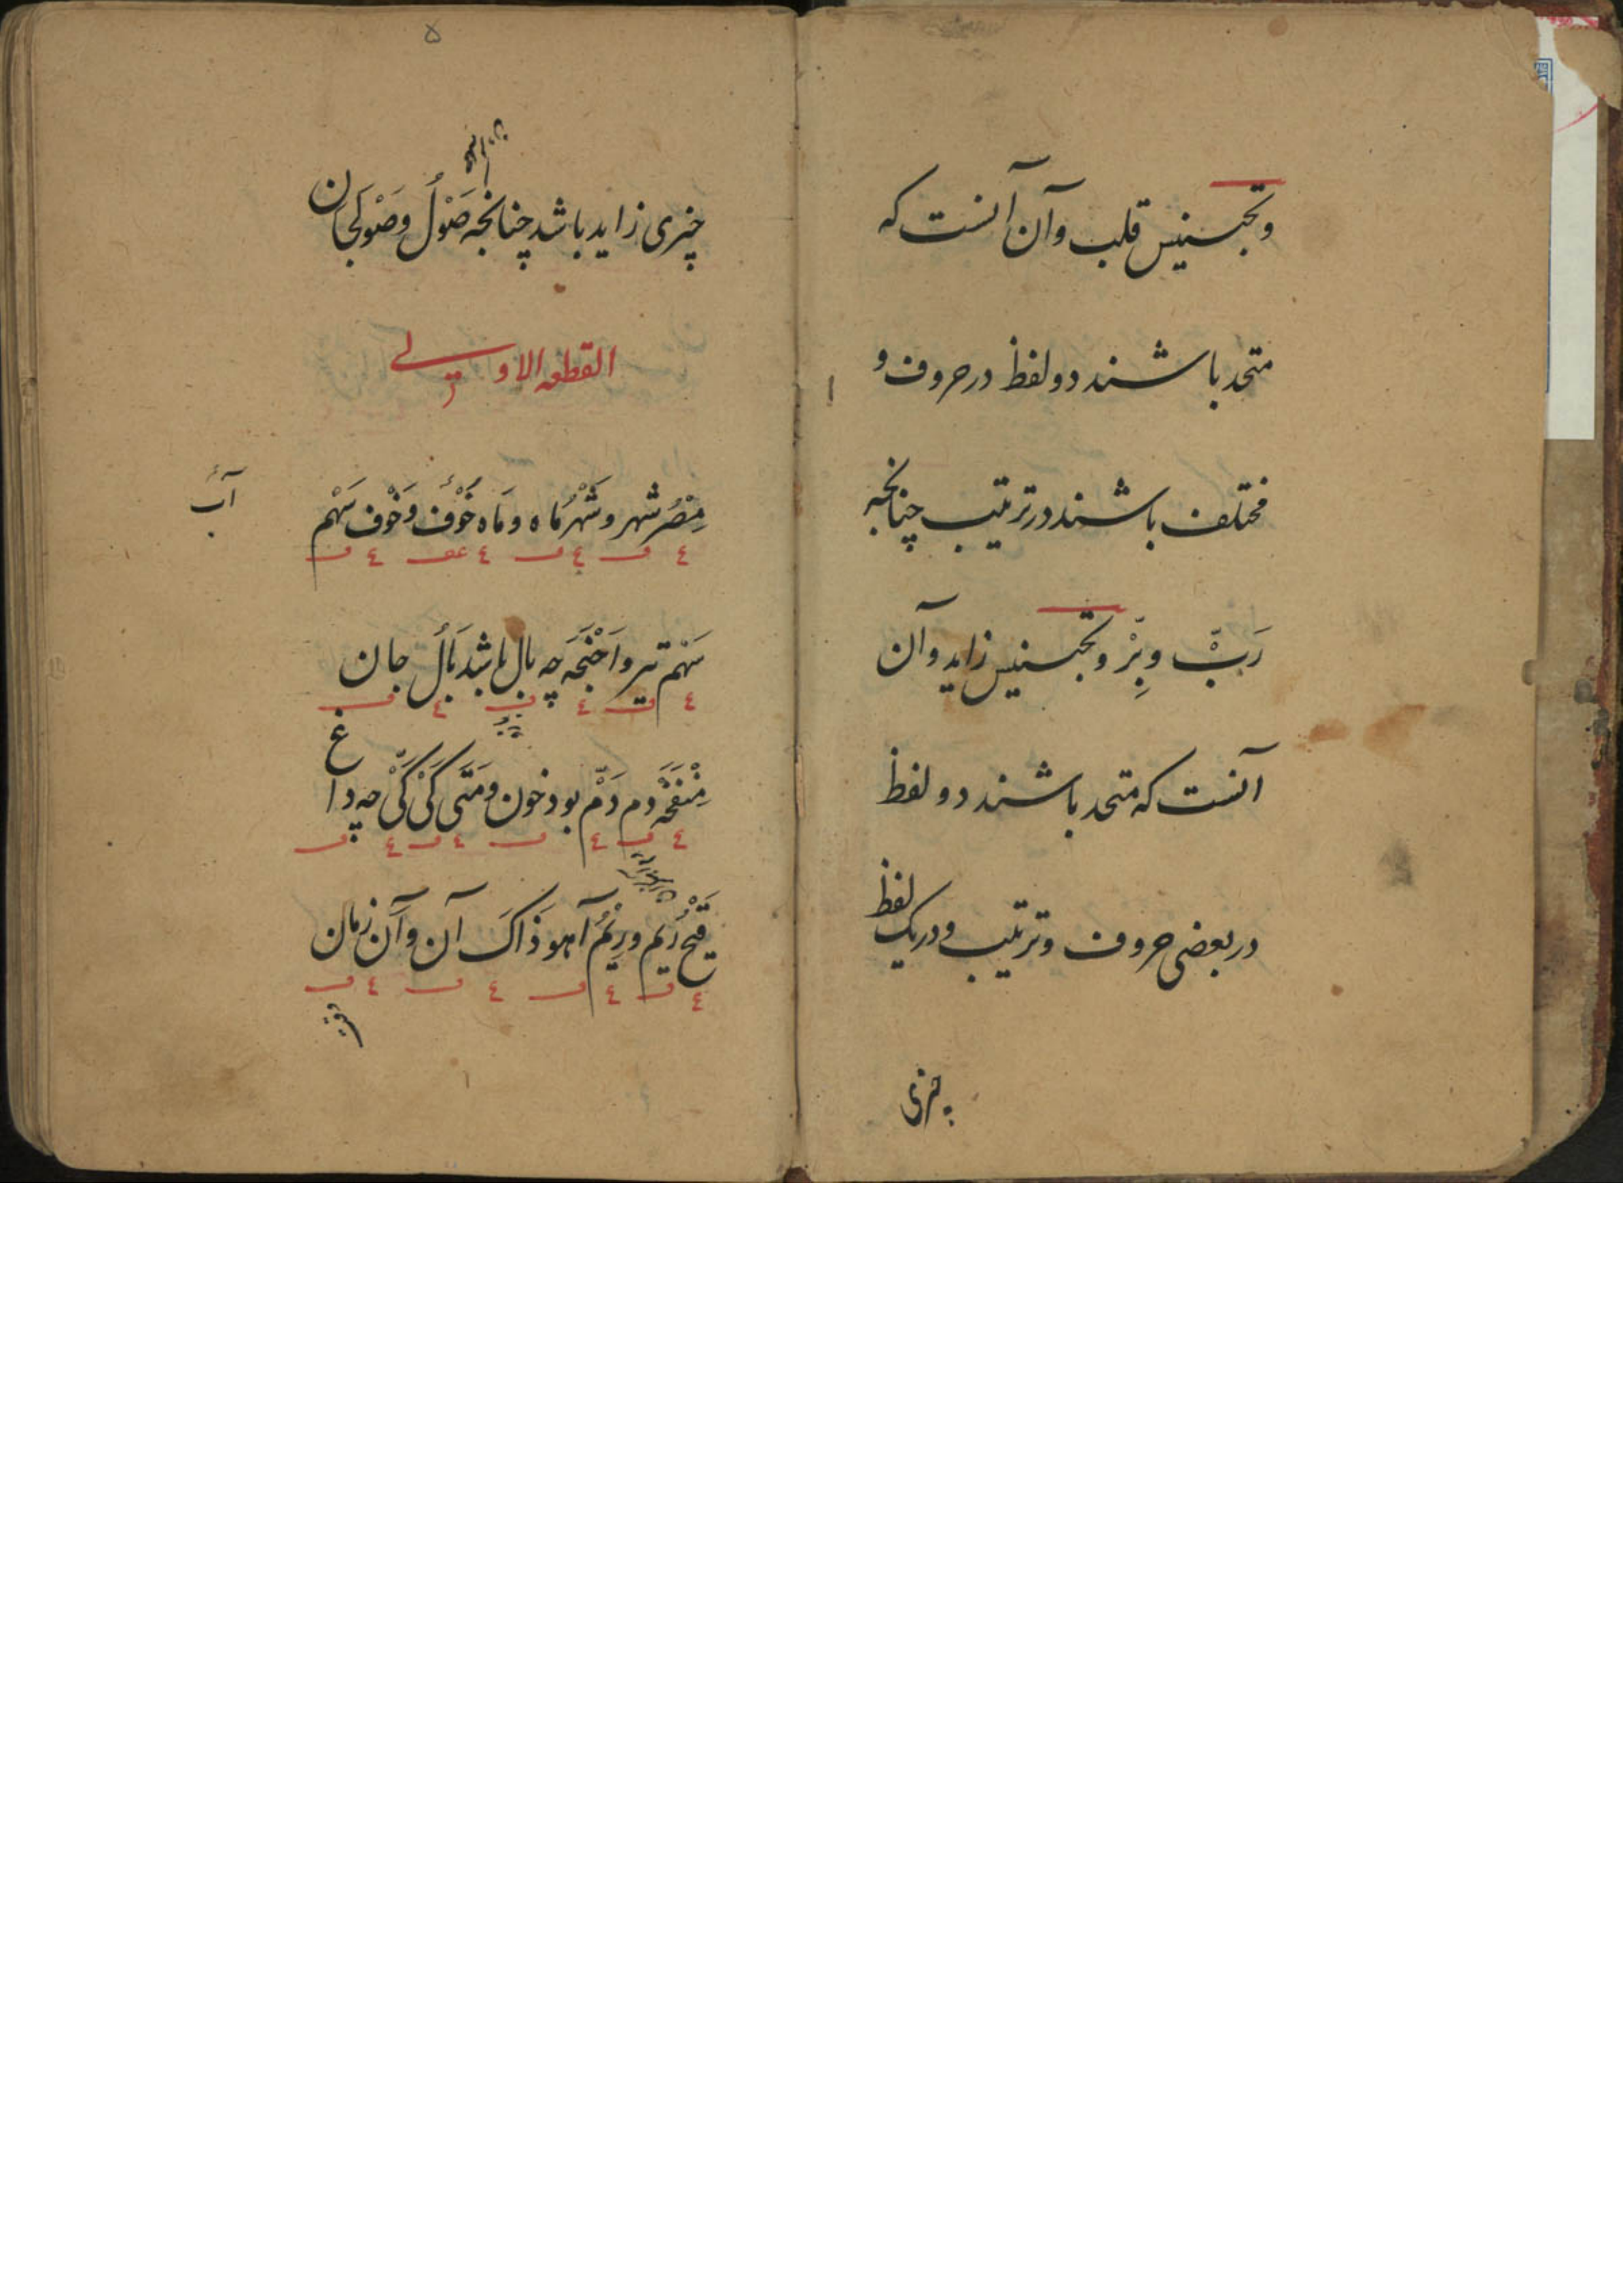 وتجنیس قلب وآن آنست که
متحد باشند دو لفظ در حروف و
مختلف باشند در ترتیب چنانچه
رَبّ وبِرّ وتجنیس زاید وآن
آنست که متحد باشند دو لفظ
در بعضی حروف وترتیب و در یک لفظ
چیزی
۵
چیزی زاید باشد چنانچه صَوْلُ وصَوْلَجان
القطعه الاولی
مِصْرُ شهر وشَهْرُ مَاه ومَاه خَوْف وَخَوْف سَهْم
آب
سَهْم تیر واَجْنِحَه چه بال باشد بَالُ جان
مِنْفَخَه دم دَمّ بود خون ومَتَی کَیْ کَیّ چه داغ
قَیْح رَیم ورِیْمُ آهو ذَاکَ آن وآن زمان